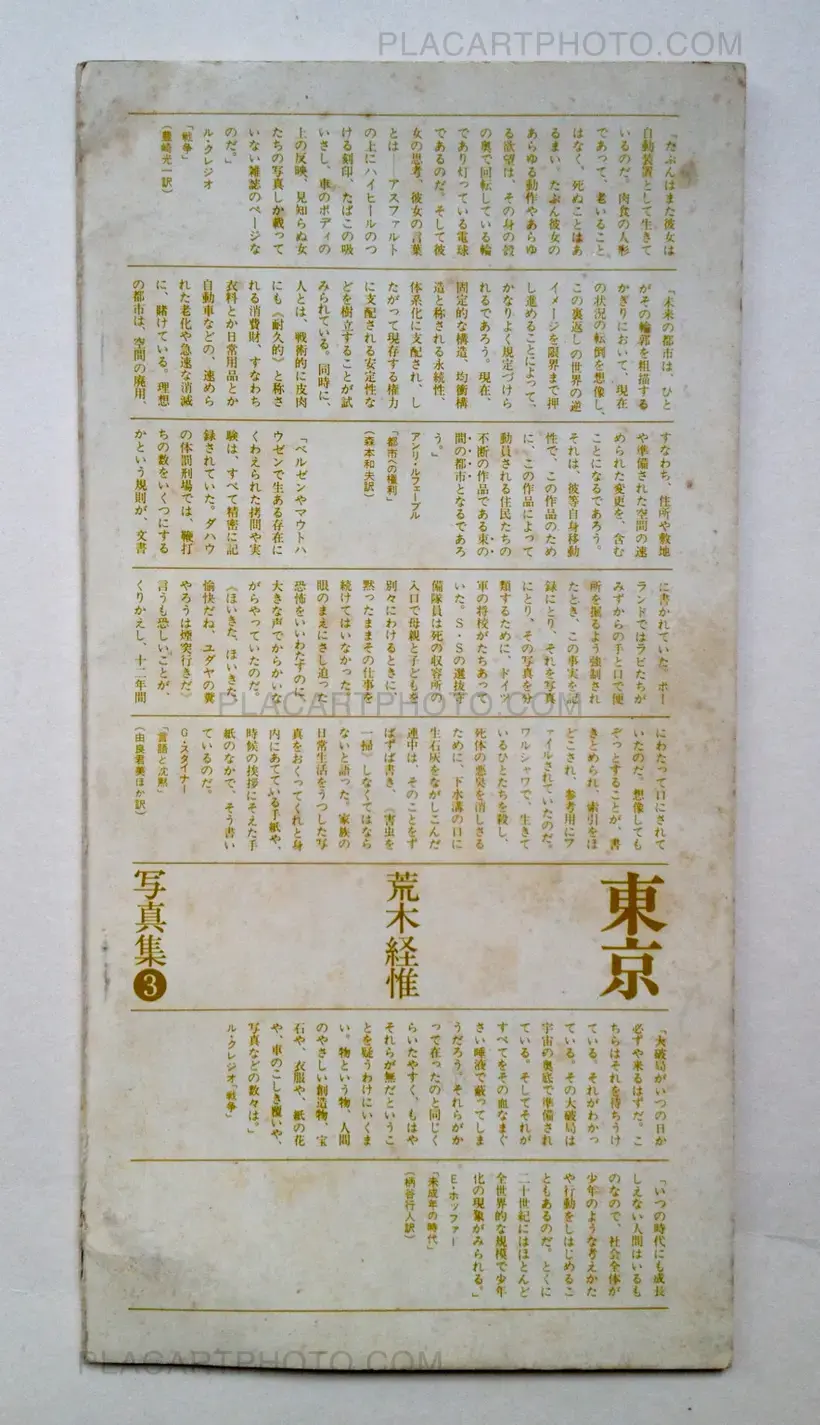 PLACARTPHOTO.COM
「たぶんはまた彼女は
自動装置として生きて
いるのだ。肉食の人形
であって、老いること
はなく、死ぬことはあ
るまい。たぶん彼女の
あらゆる動作やあらゆ
る欲望は、その身の殻
の奥で回転している輪
であり灯っている電球
であるのだ。そして彼
女の思考、彼女の言葉
とは――アスファルト
の上にハイヒールのつ
ける刻印、たばこの吸
いさし、車のボディの
上の反映、見知らぬ女
たちの写真しか載って
いない雑誌のページな
のだ。」
ル・クレジオ
「戦争」
（豊崎光一訳）
「未来の都市は、ひと
がその輪郭を粗描する
かぎりにおいて、現在
の状況の転倒を想像し、
この裏返しの世界の逆
イメージを限界まで押
し進めることによって、
かなりよく規定づけら
れるであろう。現在、
固定的な構造、均衡構
造と称される永続性、
体系化に支配され、し
たがって現存する権力
に支配される安定性な
どを樹立することが試
みられている。同時に、
人とは、戦術的に皮肉
にも《耐久的》と称さ
れる消費財、すなわち
衣料とか日常用品とか
自動車などの、速めら
れた老化や急速な消滅
に、賭けている。理想
の都市は、空間の廃用、
すなわち、住所や敷地
や準備された空間の速
められた変更を、含む
ことになるであろう。
それは、彼等自身移動
性で、この作品のため
に、この作品によって
動員される住民たちの
不断の作品である束の
間の都市となるであろ
う。」
アンリ・ルフェーブル
「都市への権利」
（森本和夫訳）
「ベルゼンやマウトハ
ウゼンで生ある存在に
くわえられた拷問や実
験は、すべて精密に記
録されていた。ダハウ
の体罰刑場では、鞭打
ちの数をいくつにする
かという規則が、文書
に書かれていた。ポー
ランドではラビたちが
みずからの手と口で便
所を掘るよう強制され
たとき、この事実を記
録にとり、それを写真
にとり、その写真を分
類するために、ドイツ
軍の将校がたちあって
いた。S・Sの選抜守
備隊員は死の収容所の
入口で母親と子どもを
別々にわけるときに、
黙ったままその仕事を
続けてはいなかった。
眼のまえにさし迫った
恐怖をいいわたすのに、
大きな声でからかいな
がらやっていたのだ。
《ほいきた、ほいきた、
愉快だね、ユダヤの糞
やろうは煙突行きだ》
言うも恐しいことが、
くりかえし、十二年間
にわたって口にされて
いたのだ。想像しても
ぞっとすることが、書
きとめられ、索引をほ
どこされ、参考用にフ
ァイルされていたのだ。
ワルシャワで、生きて
いるひとたちを殺し、
死体の悪臭を消しさる
ために、下水溝の口に
生石灰をながしこんだ
連中は、そのことをず
ばずば書き、《害虫を
一掃》しなくてはなら
ないと語った。家族の
日常生活をうつした写
真をおくってくれと身
内にあてている手紙や、
時候の挨拶にそえた手
紙のなかで、そう書い
ているのだ。
G・スタイナー
「言語と沈黙」
（由良君美ほか訳）
PLACARTPHOTO.COM
東京
荒木経惟
写真集❸
「大破局がいつの日か
必ずや来るはずだ。こ
ちらはそれを待ちうけ
ている。それがわかっ
ている。その大破局は
宇宙の奥底で準備され
ている。そしてそれが
すべてをその血なまぐ
さい唾液で蔽ってしま
うだろう。それらがか
って在ったのと同じく
らいたやすく、もはや
それらが無だというこ
とを疑うわけにいくま
い。物という物、人間
のやさしい創造物、宝
石や、衣服や、紙の花
や、車のこしき覆いや、
写真などの数々は。」
ル・クレジオ「戦争」
「いつの時代にも成長
しえない人間はいるも
のなので、社会全体が
少年のような考えかた
や行動をしはじめるこ
ともあるのだ。とくに
二十世紀にはほとんど
全世界的な規模で少年
化の現象がみられる。」
E・ホッファー
「未成年の時代」
（柄谷行人訳）
PLACARTPHOTO.COM